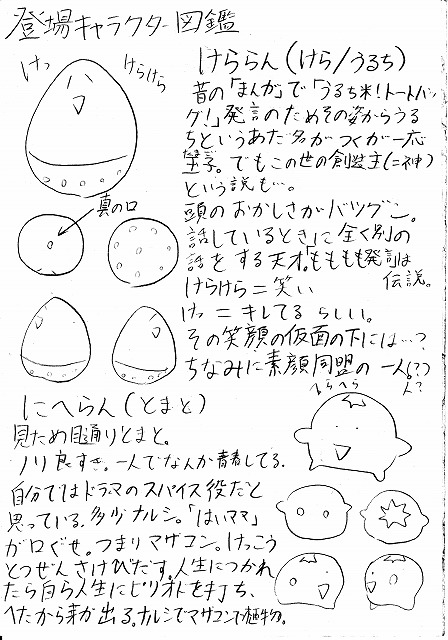 登場キャラクター図鑑
けっ
けらけら
けららん(けら/うるち)
昔の「まんが」で「うるち米!トートバッ
グ!」発言のためその姿からうる
ちというあだ名がつくが一応
でもこの世の創造主(=神)
という説も…。
真の口
頭のおかしさがバツグン。
話しているときに全く別の
話をする天才。「もももも発言」は
伝説。
けらけら=笑い
けっ=キレてる らしい。
その笑顔の仮面の下には…?
ちなみに素顔同盟の一人。(?)
人?
へらへら
にへらん(とまと)
見ため目通りとまと。
ノリ良すぎ。一人でなんか青春してる。
自分ではドラマのスパイス役だと
思っている。多少ナルシ。「はいママ」
が口ぐせ。つまりマザコン。けっこう
とつぜんさけびだす。人生につかれ
たら自ら人生にピリオドを打ち、
へたから芽が出る。ナルシでマザコンで植物。